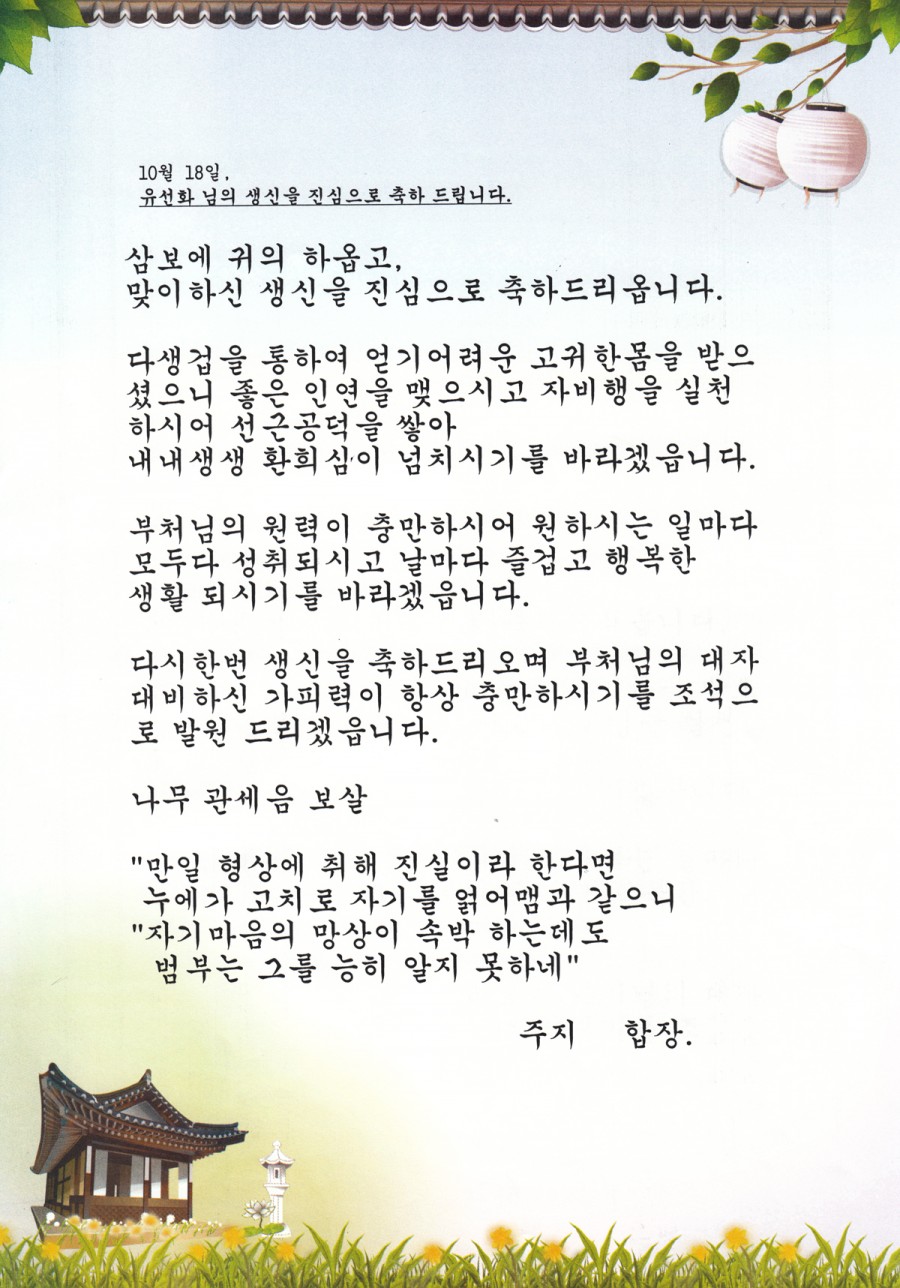 10월 18일,
유선화 님의 생신을 진심으로 축하 드립니다.
삼보에 귀의 하옵고,
맞이하신 생신을 진심으로 축하드리옵니다.
다생겁을 통하여 얻기어려운 고귀한몸을 받으
셨으니 좋은 인연을 맺으시고 자비행을 실천
하시어 선근공덕을 쌓아
내내생생 환희심이 넘치시기를 바라겠읍니다.
부처님의 원력이 충만하시어 원하시는 일마다
모두다 성취되시고 날마다 즐겁고 행복한
생활 되시기를 바라겠읍니다.
다시한번 생신을 축하드리오며 부처님의 대자
대비하신 가피력이 항상 충만하시기를 조석으
로 발원 드리겠읍니다.
나무 관세음 보살
"만일 형상에 취해 진실이라 한다면
누에가 고치로 자기를 얽어맴과 같으니
"자기마음의 망상이 속박 하는데도
범부는 그를 능히 알지 못하네"
주지 합장.